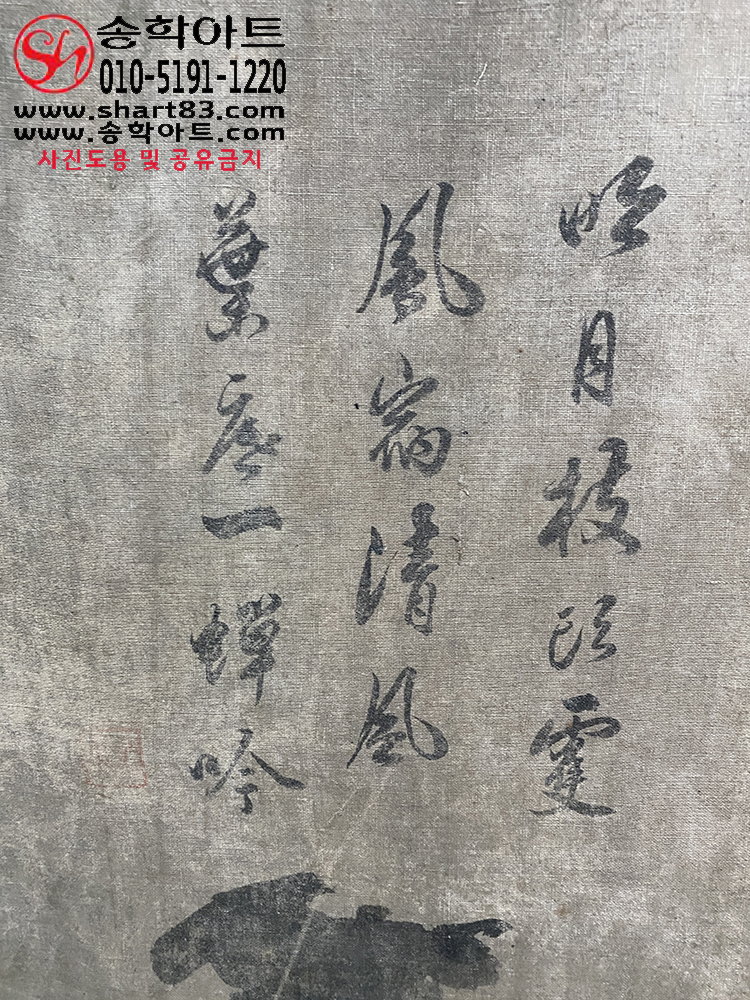 송학아트
010-5191-1220
www.shart83.com
www.송학아트.com
사진도용 및 공유금지
明月枝頭䨇
鳳宿清風
葉底一蟬吟